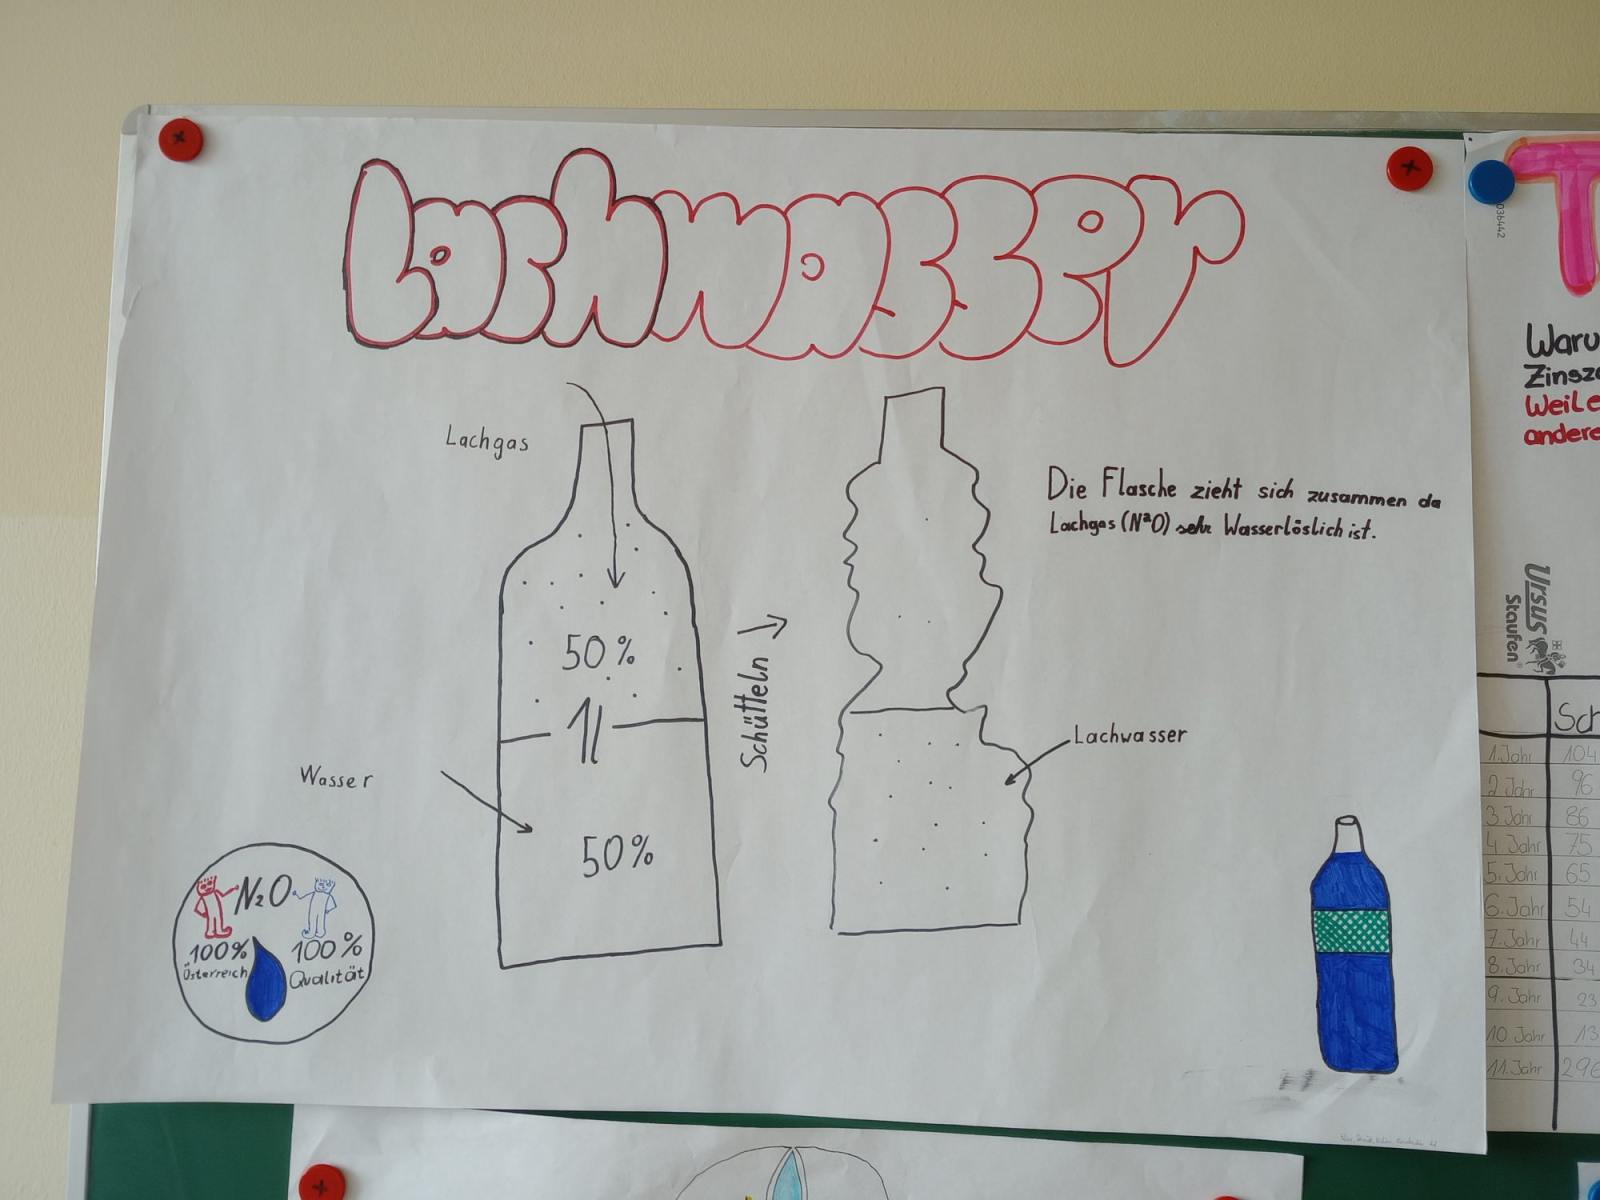 Lachwasser
Lachgas
50%
1l
Wasser
50%
Schütteln
Die Flasche zieht sich zusammen da
Lachgas (N²O) sehr Wasserlöslich ist.
Lachwasser
N₂O
100% 100%
Österreich Qualität
T
036442
Waru
Zinsz
Weile
andere
Ursus
Staufen®
Sch
1. Jahr 104
2 Jahr 96
3 Jahr 86
4 Jahr 75
5. Jahr 65
6. Jahr 54
7. Jahr 44
8. Jahr 34
9. Jahr 23
10. Jahr 13
11. Jahr 296